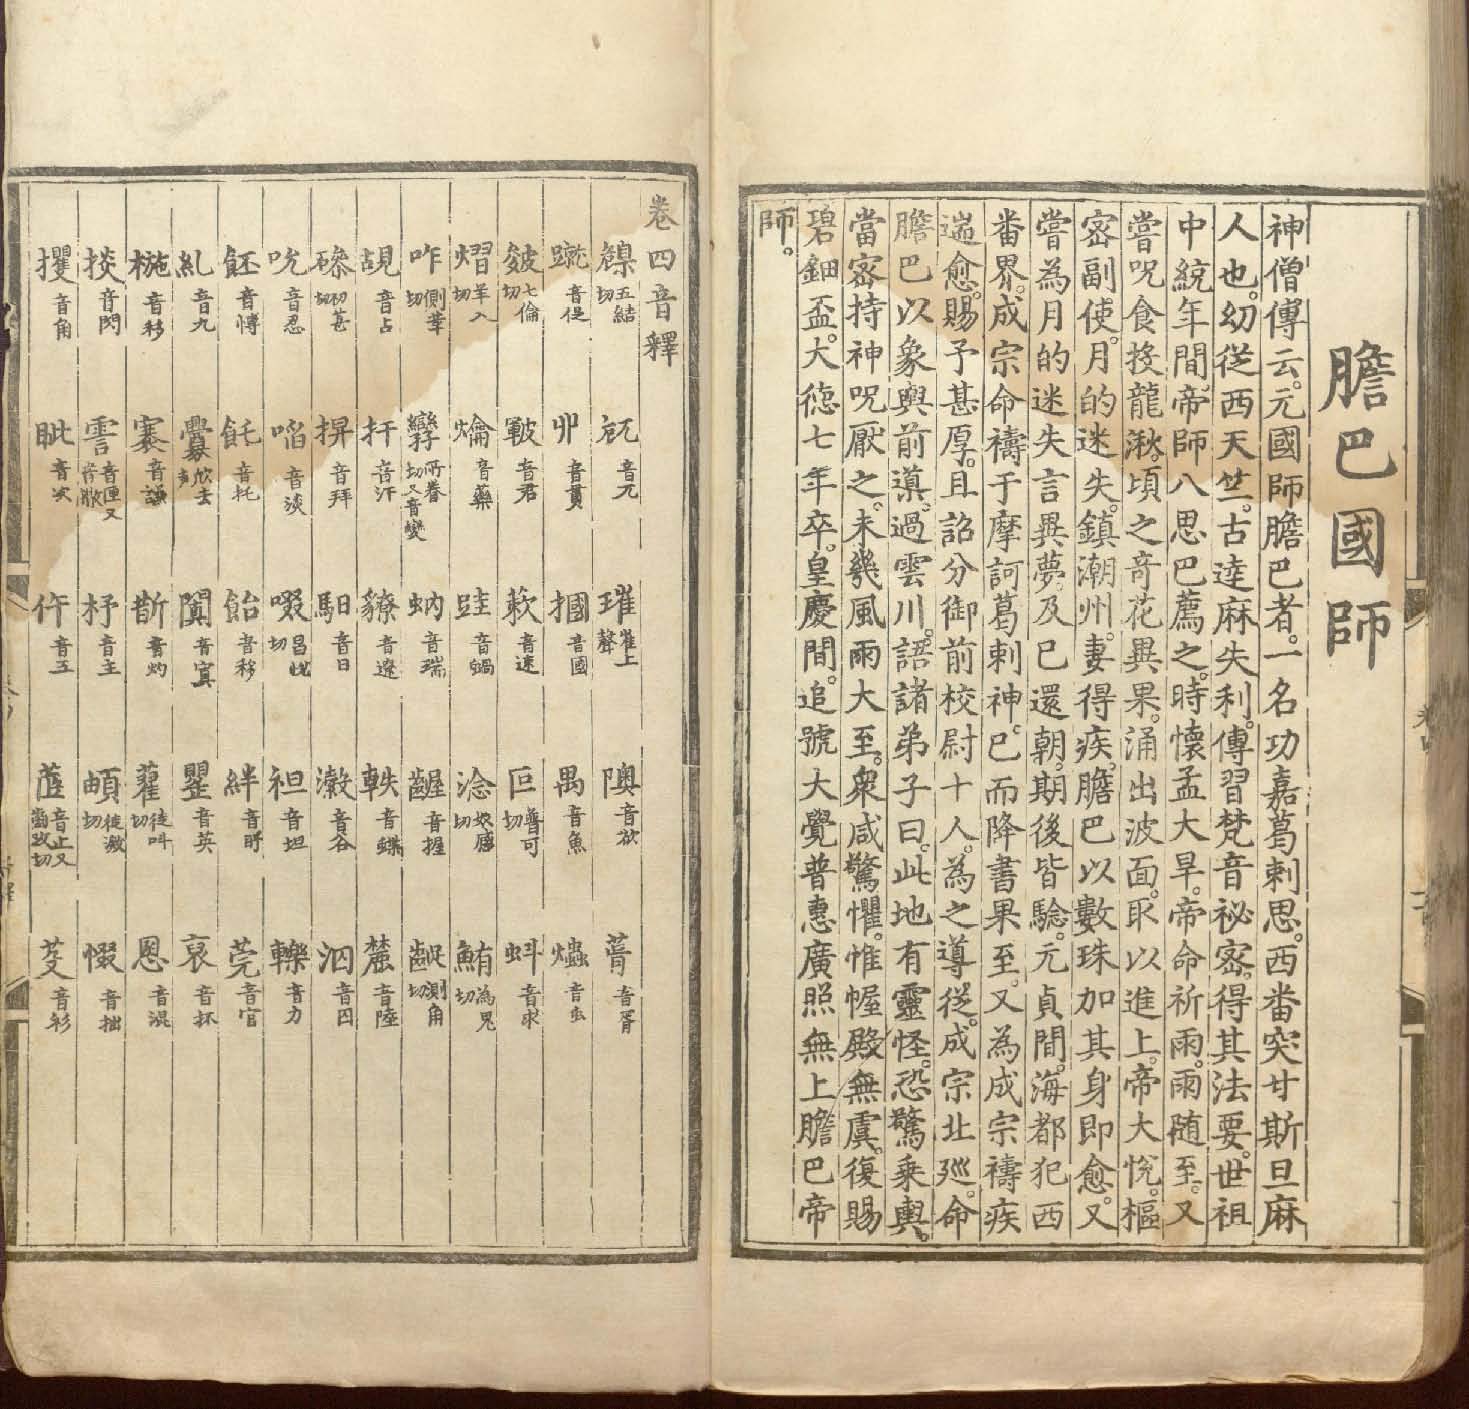 膽巴國師
神僧傳云。元國師膽巴者。一名功嘉葛剌思。西番突甘斯旦麻
人也。幼從西天竺。古達麻失利。傳習梵音祕密。得其法要。世祖
中統年間。帝師八思巴薦之。時懷孟大旱。帝命祈雨。雨随至。又
嘗呪食投龍湫。頃之竒花異果。涌出波面。取以進上。帝大悅。樞
密副使。月的迷失。鎮潮州。妻得疾。膽巴以數珠加其身即愈。又
嘗為月的迷失言異夢。及巳還朝。期後皆驗。元貞間。海都犯西
番界。成宗命禱于摩訶葛剌神。巳而降書果至。又為成宗禱疾
遄愈。賜予甚厚。且詔分御前校尉十人。為之導從。成宗北廵。命
膽巴以象輿前導。過雲川。語諸弟子曰。此地有靈怪。恐驚乘輿。
當密持神呪厭之。未幾風雨大至。衆咸驚懼。惟幄殿無虞。復賜
碧鈿盃。大徳七年卒。皇慶間。追號大覺普惠廣照無上膽巴帝
師。
卷四音釋
五結切 音兀 璀崔上聲 隩音欲 蓱音胥
音促 丱音貫 摑音國 禺音魚 爞音虫
皴七倫切 皸音君 蔌音速 叵普可切 蚪音求
熠羊入切 爚音藥 跬音蝸 淰奴感切 鮪為鬼切
咋側革切 孿所眷切又音孌 蚋音瑞 齷音握 齪測角切
覘音占 扞音汗 獠音遼 軼音蝶 麓音陸
磣初甚切 拜音拜 馹音日 瀔音谷 泅音囚
吮音忍 啗音淡 啜昌悅切 袒音坦 轢音力
飥音托 飴音移 絆音畔 莞音官
糺音九 釁欣去聲 闐音窴 瞾音英 裒音抔
椸音移 褰音謙 斮音灼 藋徒叫切 慁音混
掞音閃 霅音匣又音㪚 杼音主 頔徒激切 惙音拙
擭音角 眦音次 仵音五 茝音止又昌改切 芟音衫